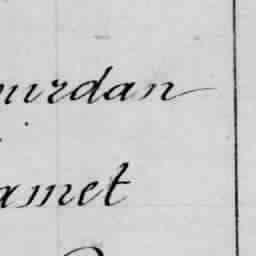 urdan
amet